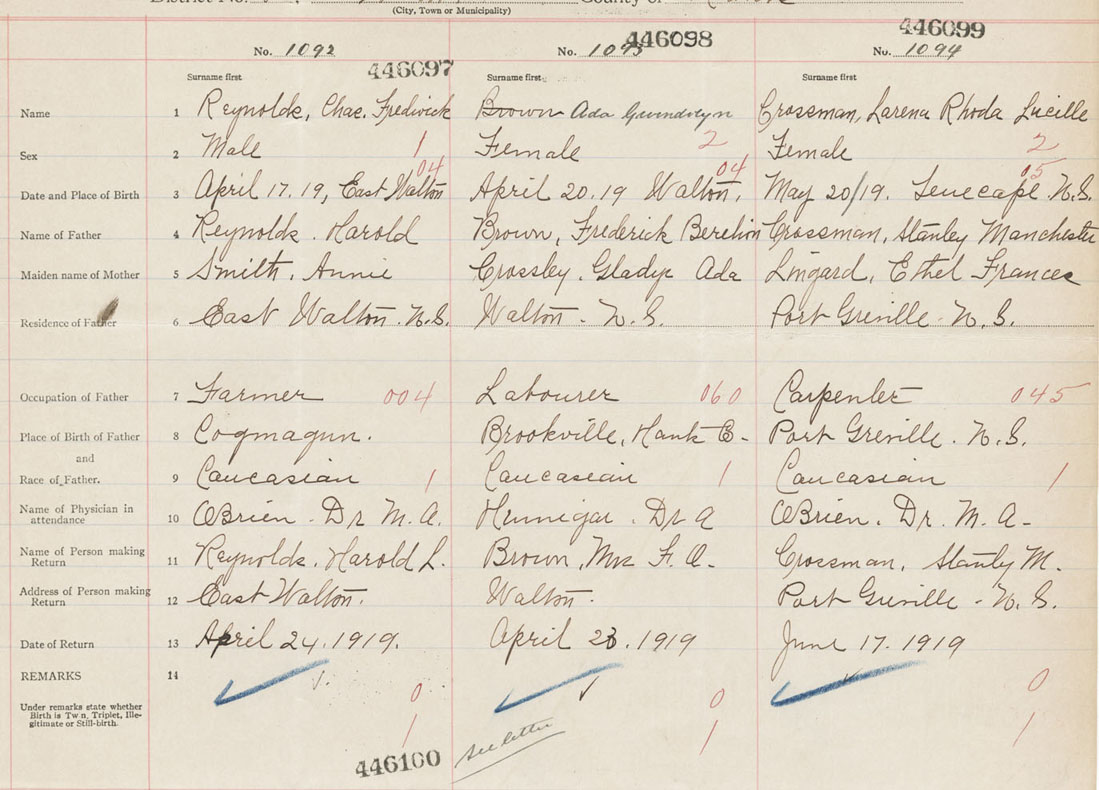 (City, Town or Municipality)
No. 1092 No. 1093 446098 No. 1094 446099
446097
Surname first Surname first Surname first
Name 1 Reynolds, Chas. Fredrick Brown Ada Gwendolyn Crossman, Larena Rhoda Lucille
Sex 2 Male 1 Female 2 Female 2
04 04 05
Date and Place of Birth 3 April 17. 19, East Walton April 20. 19 Walton. May 20/19. Tenecape N.S.
Name of Father 4 Reynolds. Harold Brown, Frederick Crossman, Stanley Manchester
Maiden name of Mother 5 Smith, Annie Crossley, Gladys Ada Lingard, Ethel Frances
Residence of Father 6 East Walton. N.S. Walton - N.S. Port Greville - N.S.
Occupation of Father 7 Farmer 004 Labourer 060 Carpenter 045
Place of Birth of Father 8 Cogmagun. Brookville, Hants Port Greville. N.S.
and
Race of Father. 9 Caucasian 1 Caucasian 1 Caucasian 1
Name of Physician in
attendance 10 OBrien. Dr M. A. Hennigar. Dr A OBrien. Dr. M. A.
Name of Person making
Return 11 Reynolds. Harold L. Brown, Mrs F. A. Crossman, Stanly M.
Address of Person making
Return 12 East Walton. Walton. Port Greville - N.S.
Date of Return 13 April 24. 1919. April 23. 1919 June 17. 1919
REMARKS 14
0 0 0
Under remarks state whether
Birth is Twin, Triplet, Ille-
gitimate or Still-birth.
1 1 1
see letter
446100